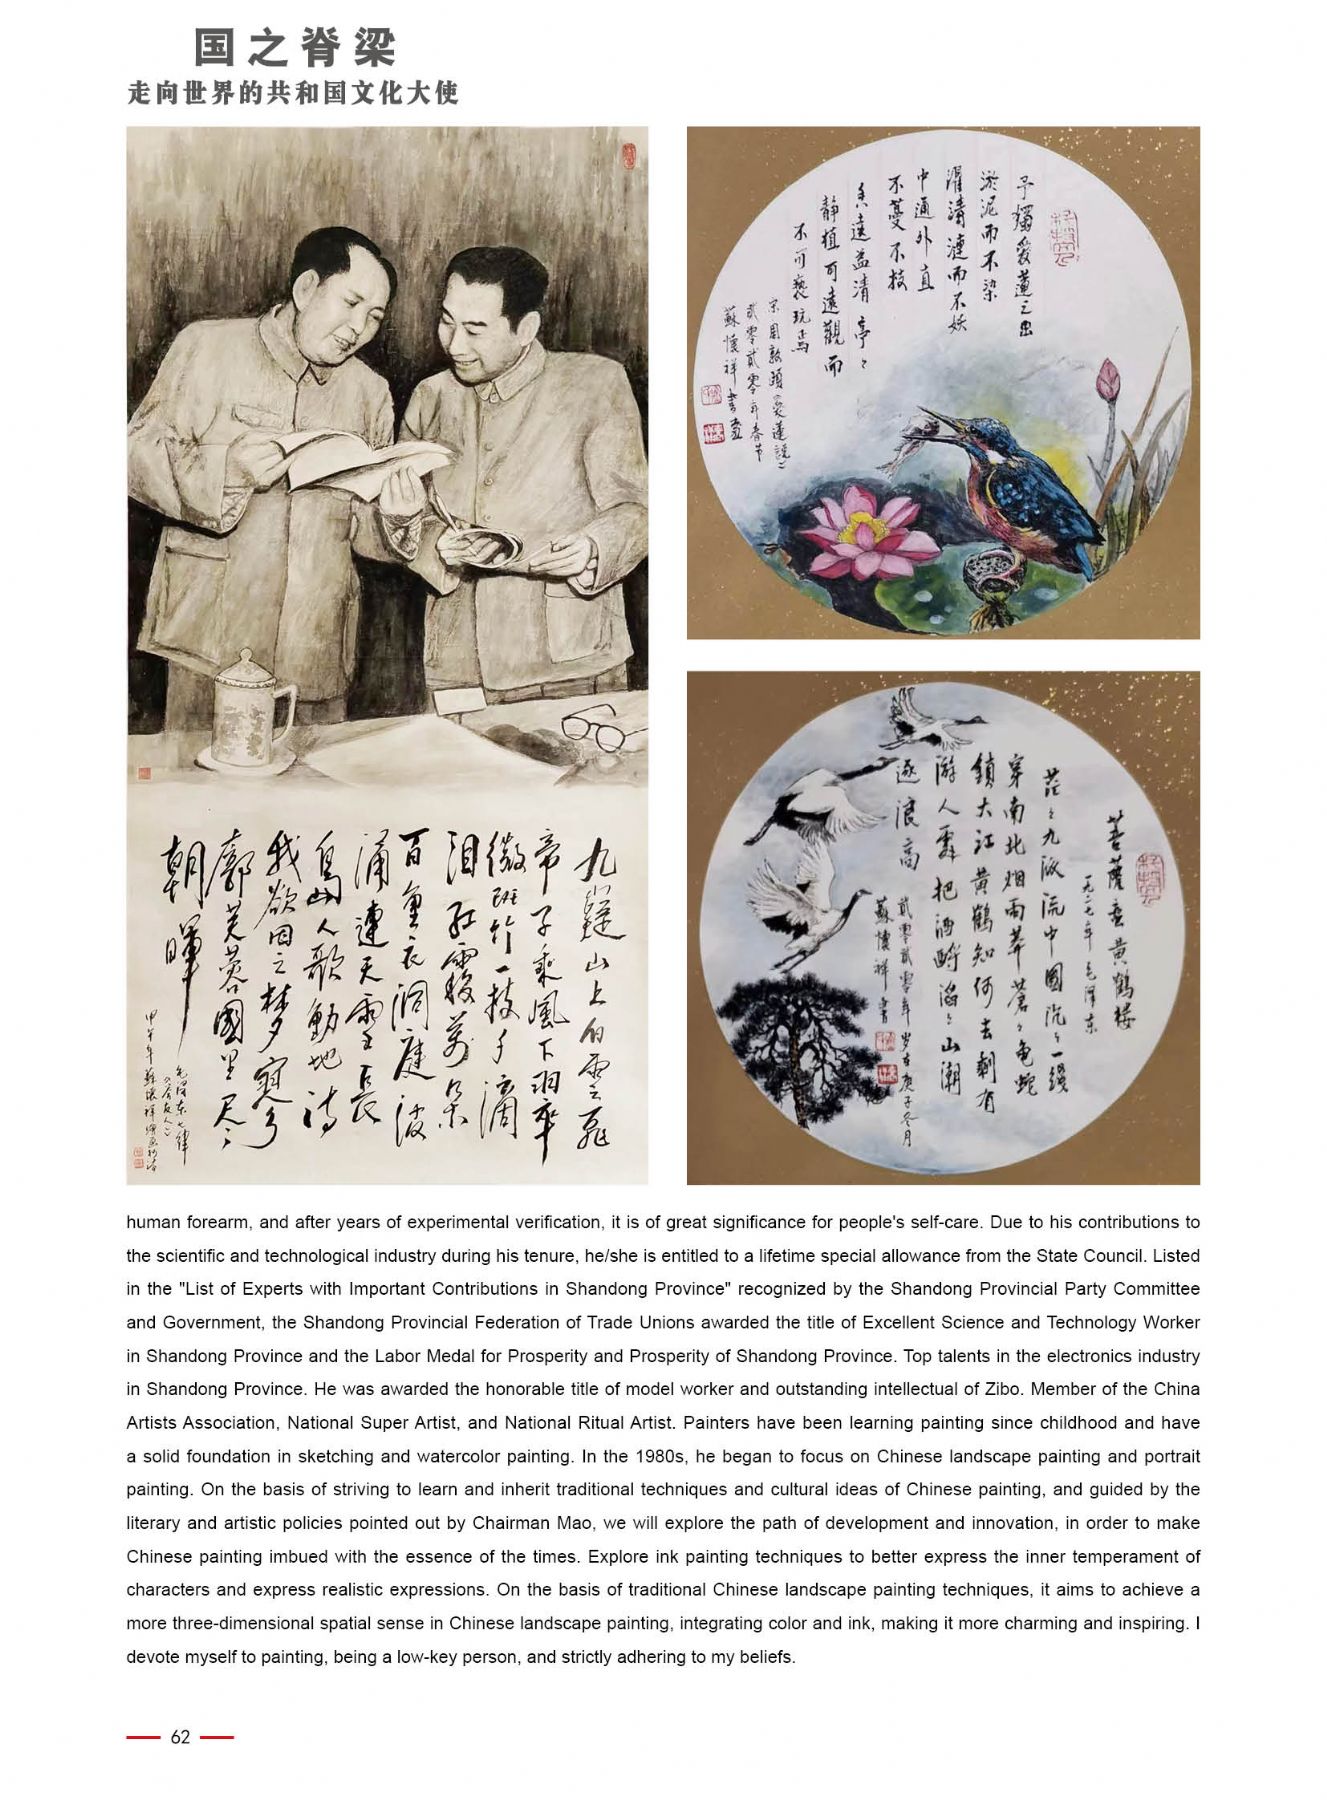 国之脊梁
走向世界的共和国文化大使
九嶷山上白云飛
帝子乘風下翠
微斑竹一枝千滴
泪紅霞萬朵
百重衣洞庭波
涌連天雪長
島人歌動地詩
我欲因之夢寥
廓芙蓉國里尽
朝暉
毛澤东七律
《答友人》
甲午年蘇懷祥
予獨爱蓮之出
淤泥而不染
濯清漣而不妖
中通外直
不蔓不枝
香遠益清亭々
静植可遠觀而
不可亵玩焉
宋周敦頤《爱蓮説》
贰零贰零年春节
蘇懷祥書画
菩薩蛮黄鶴楼
一九二七年毛泽东
茫々九派流中國沉々一綫
穿南北烟雨莽蒼々龟蛇
鎖大江黄鶴知何去剩有
游人處把酒酹滔々心潮
逐浪高
贰零贰零年岁在庚子冬月
蘇懷祥書
human forearm, and after years of experimental verification, it is of great significance for people's self-care. Due to his contributions to
the scientific and technological industry during his tenure, he/she is entitled to a lifetime special allowance from the State Council. Listed
in the "List of Experts with Important Contributions in Shandong Province" recognized by the Shandong Provincial Party Committee
and Government, the Shandong Provincial Federation of Trade Unions awarded the title of Excellent Science and Technology Worker
in Shandong Province and the Labor Medal for Prosperity and Prosperity of Shandong Province. Top talents in the electronics industry
in Shandong Province. He was awarded the honorable title of model worker and outstanding intellectual of Zibo. Member of the China
Artists Association, National Super Artist, and National Ritual Artist. Painters have been learning painting since childhood and have
a solid foundation in sketching and watercolor painting. In the 1980s, he began to focus on Chinese landscape painting and portrait
painting. On the basis of striving to learn and inherit traditional techniques and cultural ideas of Chinese painting, and guided by the
literary and artistic policies pointed out by Chairman Mao, we will explore the path of development and innovation, in order to make
Chinese painting imbued with the essence of the times. Explore ink painting techniques to better express the inner temperament of
characters and express realistic expressions. On the basis of traditional Chinese landscape painting techniques, it aims to achieve a
more three-dimensional spatial sense in Chinese landscape painting, integrating color and ink, making it more charming and inspiring. I
devote myself to painting, being a low-key person, and strictly adhering to my beliefs.
62